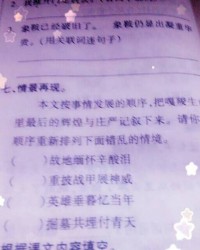 3．象鞍已经破旧了。 象鞍仍显出凝重华
贵。(用关联词连句子)
七、情景再现。
本文按事情发展的顺序,把嘎羧生命
里最后的辉煌与庄严记叙下来。请你
顺序重新排列下面错乱的情境。
( )故地缅怀辛酸泪
( )重披战甲展神威
( )英雄垂暮忆当年
( )掘墓共埋付青天
根据课文内容填空